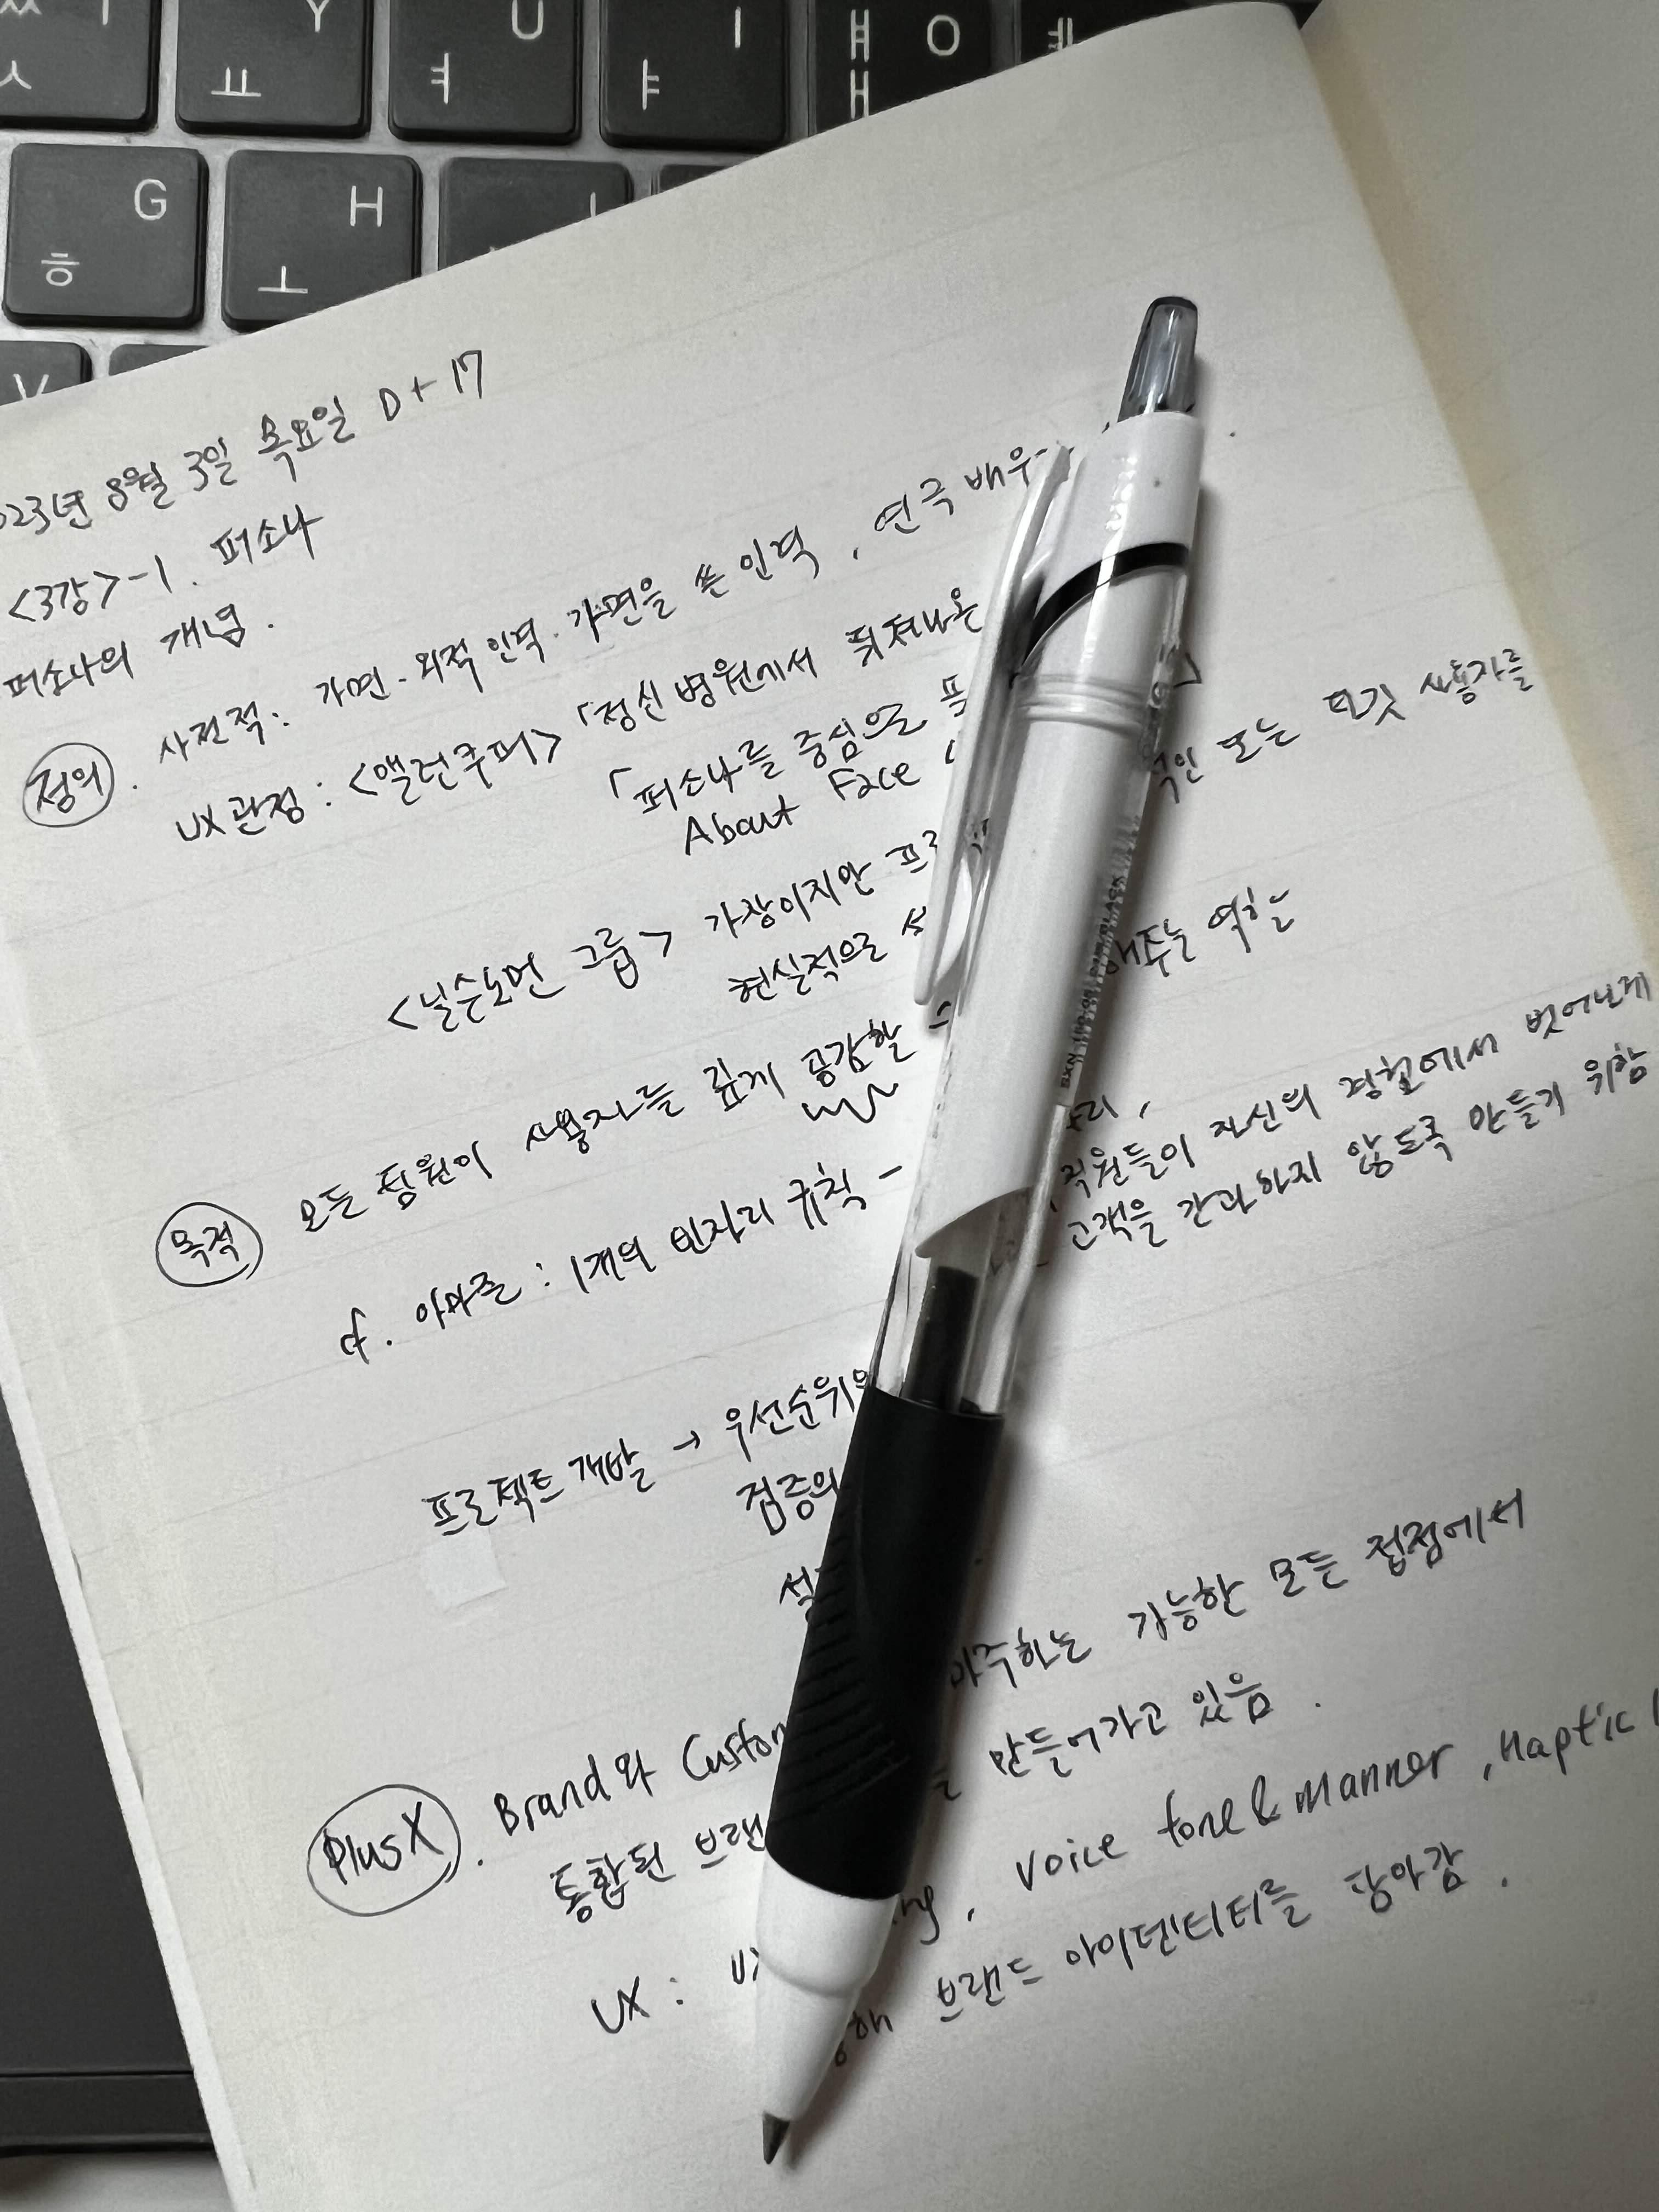 Y U I O
ㅛ ㅕ ㅑ ㅐ
G H
ㅎ ㅗ
023년 8월 3일 목요일 D+17
<3강>-1. 퍼소나
퍼소나의 개념.
정의. 사전적: 가면·외적 인격·가면을 쓴 인격, 연극배우
UX관점: <앨런쿠퍼> 「정신병원에서 뛰쳐나온
「퍼소나를 중심으로 프
About Face
<닐슨노먼 그룹> 가상이지만 또는 타깃 사용자를
현실적으로 해주는 역할
목적 모든 팀원이 사용자를 깊게 공감할
cf. 아마존: 1개의 빈자리 규칙 - 직원들이 자신의 경험에서 벗어나게
고객을 간과하지 않도록 만들기 위함
프로젝트 개발 → 우선순위의
검증의
PlusX. Brand와 마주하는 가능한 모든 접점에서
통합된 브랜 만들어가고 있음.
UX: Voice tone & manner, Haptic
브랜드 아이덴티티를 담아감.